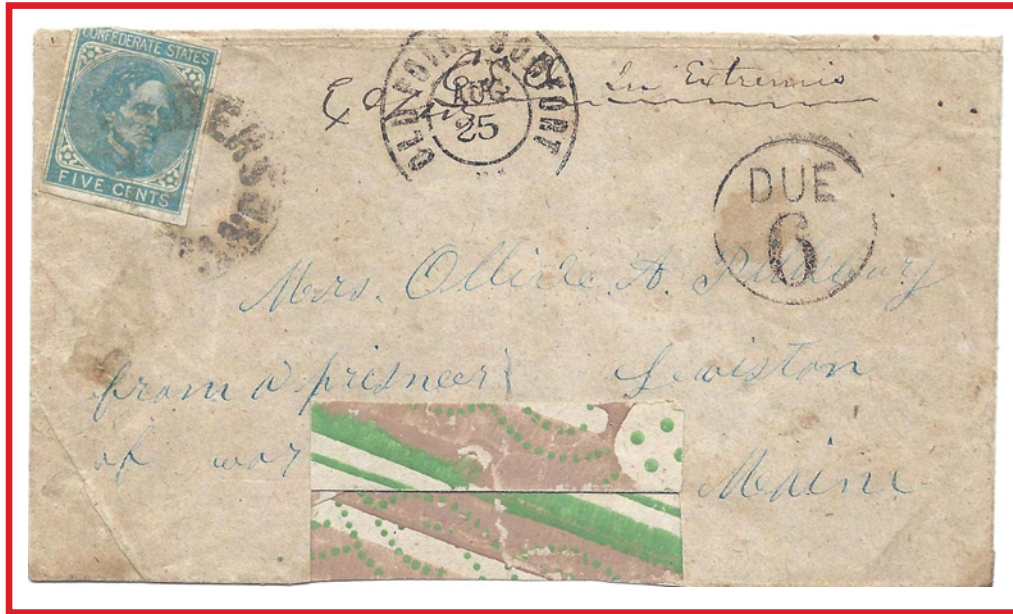 CONFEDERATE STATES
FIVE CENTS
OLD POINT COMFORT
AUG
25
In Extremis
DUE
6
Mrs. Ollivee A. Pillsbury
from a prisneer
of war
Lewiston
Maine